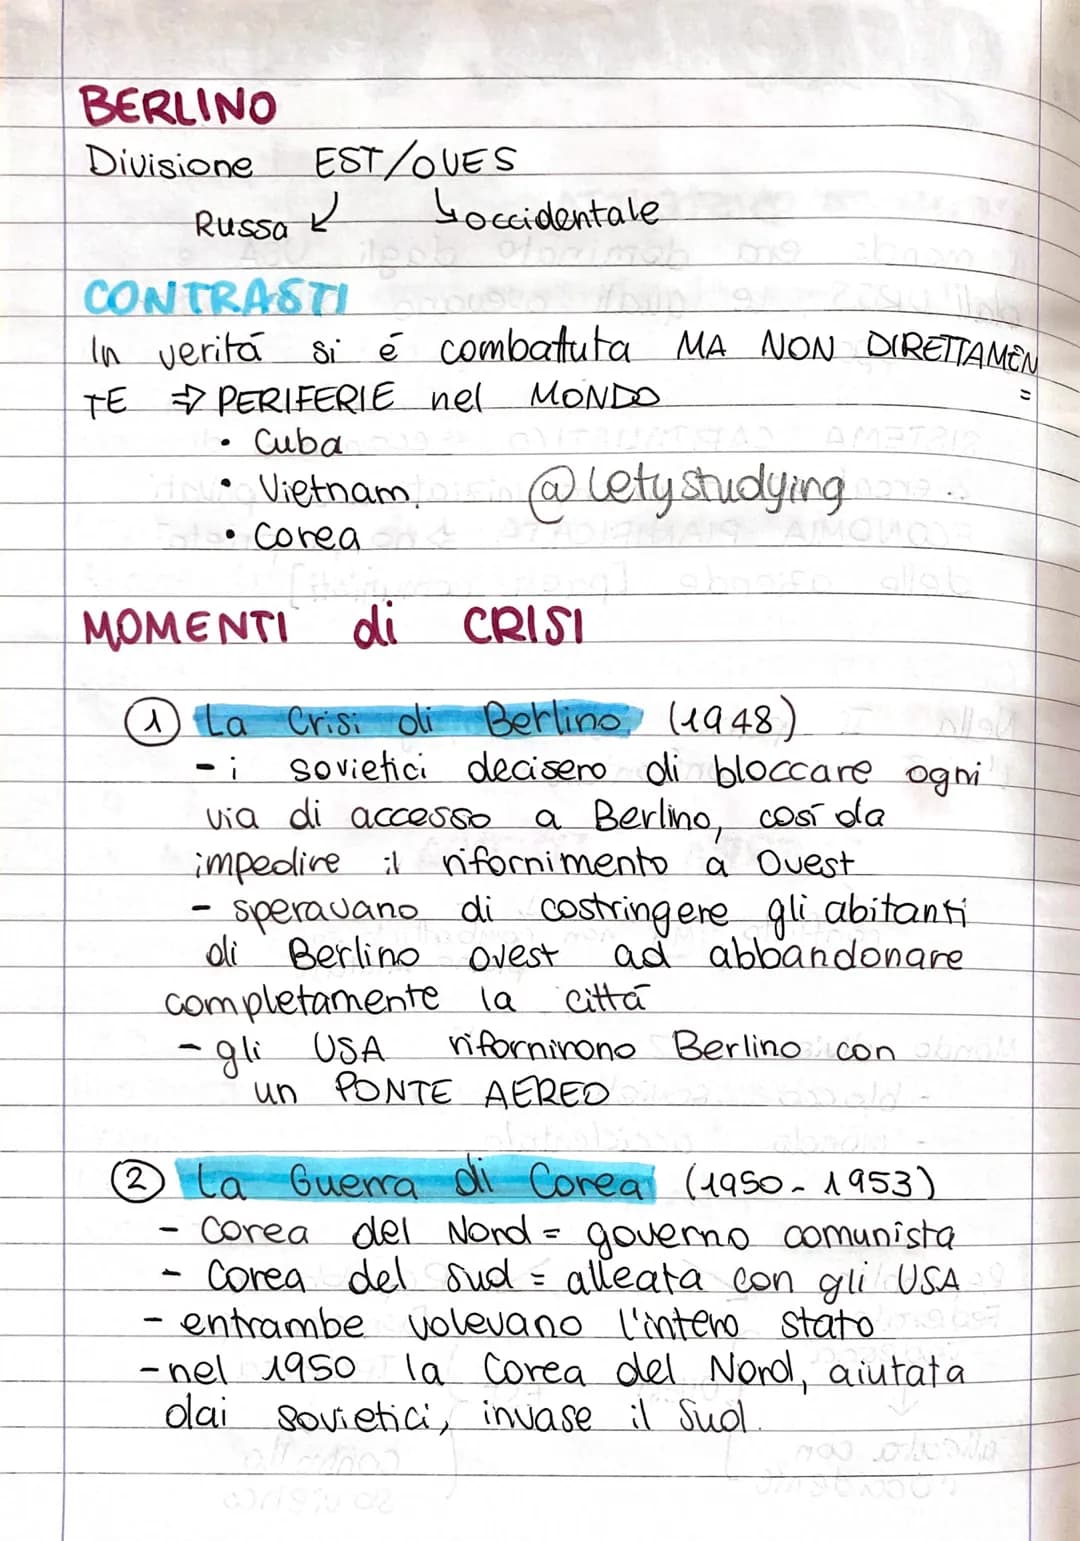 BERLINO
Divisione EST/OVES
Russa ↙ ↳occidentale
CONTRASTI
In veritá si é combattuta MA NON DIRETTAMEN
TE ⇒ PERIFERIE nel MONDO =
• Cuba
• Vietnam
@letystudying
• Corea
MOMENTI di CRISI
1 La Crisi di Berlino (1948)
- i sovietici decisero di bloccare ogni
via di accesso a Berlino, cosí da
impedire il rifornimento a Ovest
- speravano di costringere gli abitanti
di Berlino ovest ad abbandonare
completamente la cittá
- gli USA rifornirono Berlino con
un PONTE AEREO
2 La Guerra di Corea (1950-1953)
- Corea del Nord = governo comunista
- Corea del Sud = alleata con gli USA
- entrambe volevano l'intero stato
- nel 1950 la Corea del Nord, aiutata
dai sovietici, invase il Sud.